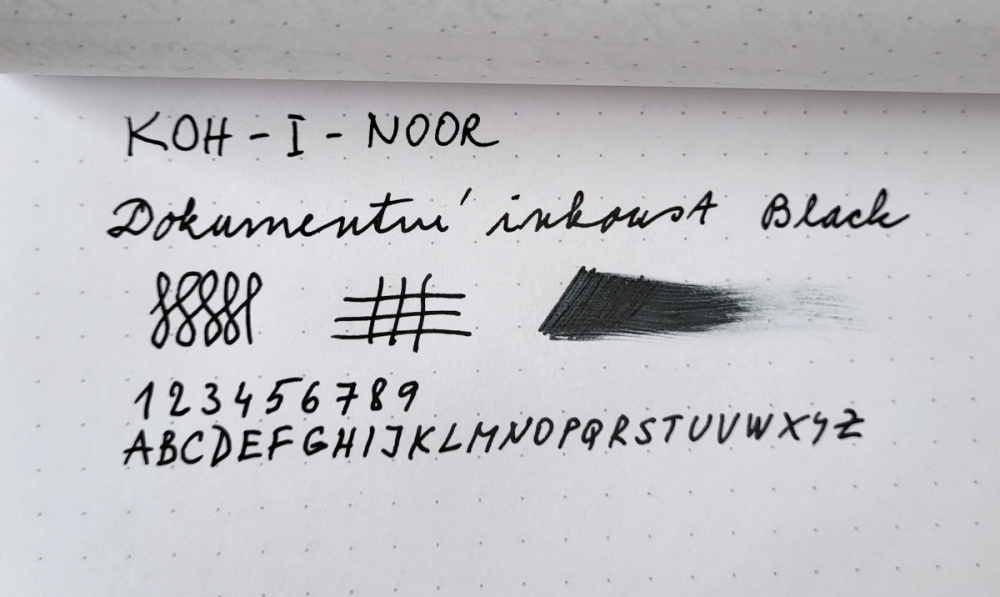 KOH - I - NOOR
Dokumentní inkoust Black
1 2 3 4 5 6 7 8 9
A B C D E F G H I J K L M N O P Q R S T U V W X Y Z